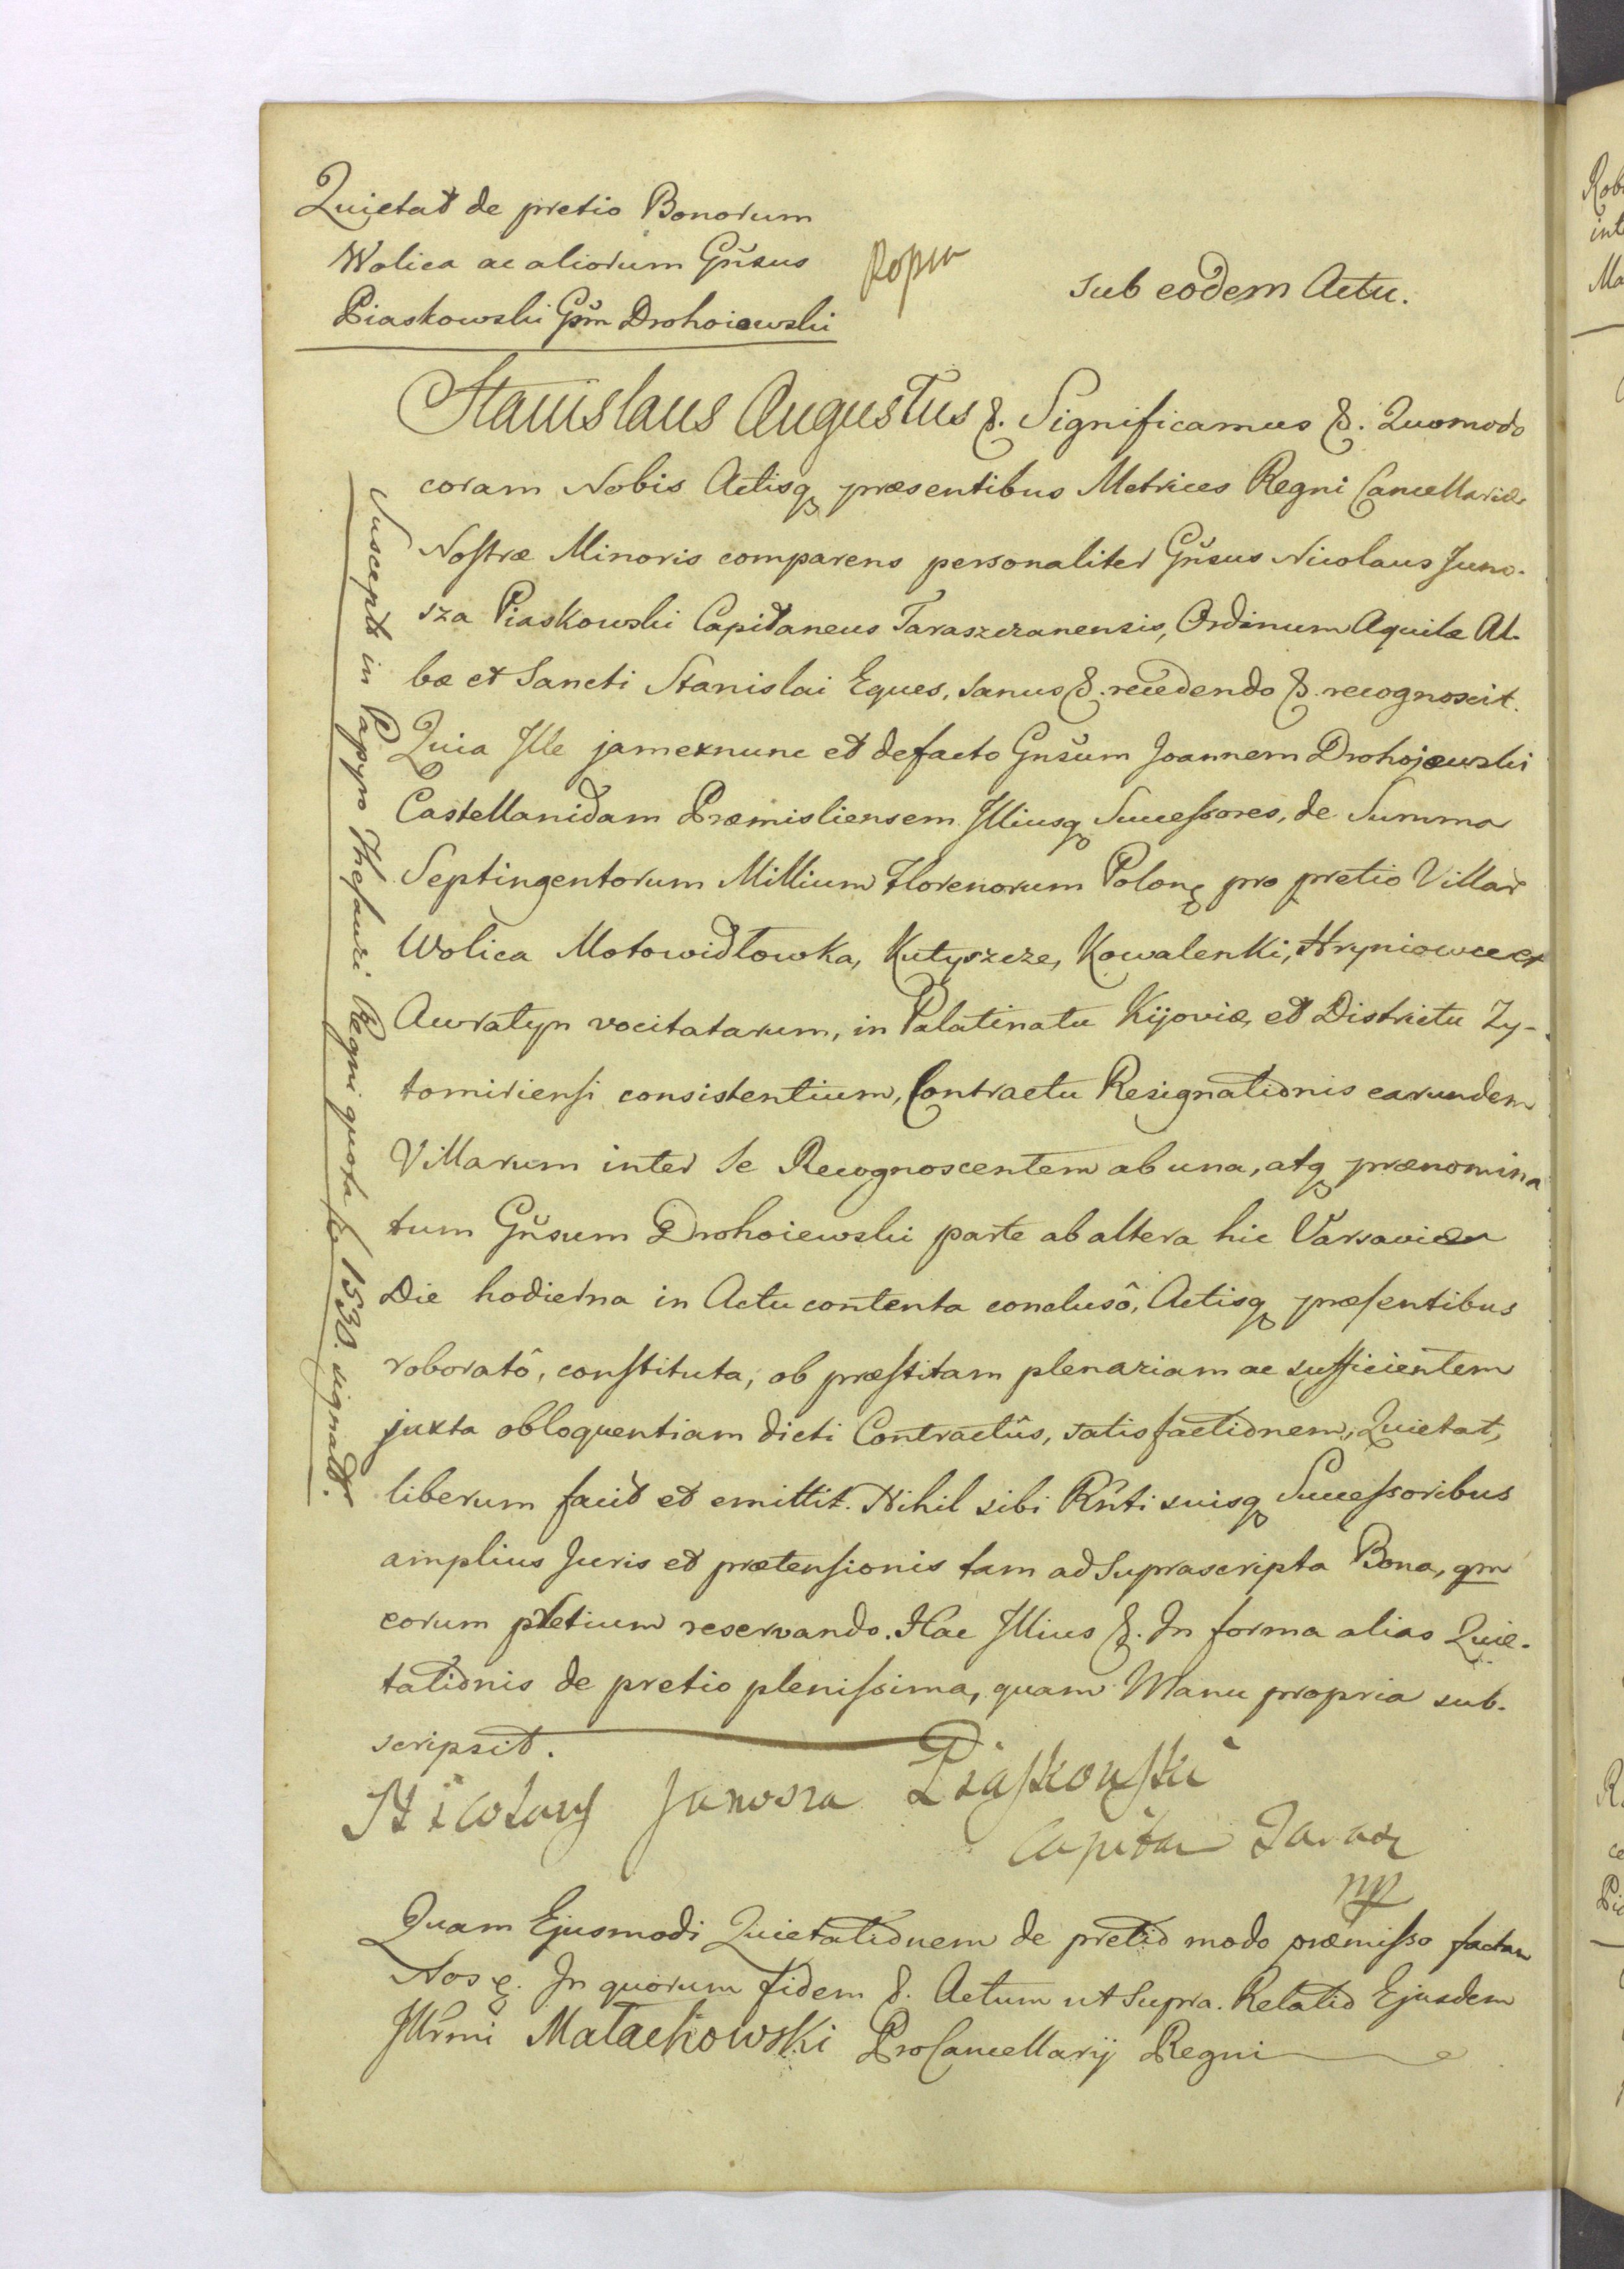 Quietat de pretio Bonorum
Wolica ac aliorum Gñsus
Piaskowski Gsm Drohoiewski
Sub eodem Actu.
Stanislaus Augustus &. Significamus &. Quomodo
coram Nobis Actisq præsentibus Metrices Regni Cancellariæ
Nostræ Minoris comparens personaliter Gñsus Nicolaus Juno-
sza Piaskowski Capitaneus Taraszczanensis, Ordinum Aquilæ Al-
bæ et Sancti Stanislai Eques, sanus &. recedendo &. recognoscit.
Quia Ille jam exnunc et defacto Gnsum Joannem Drohojewski
Castellanidam Præmisliensem Illiusq Successores, de Summa
Septingentorum Millium Florenorum Polon, pro pretio Villar
Wolica Motowidłowka, Kutyszcze, Kowalenki, Hryniowce et
Awratyn vocitatarum, in Palatinatu Kijoviæ, et Districtu Zy-
tomiriensi consistentium, Contractu Resignationis earundem
Villarum inter Se Recognoscentem ab una, atq prænomina
tum Gñsum Drohoiewski parte ab altera hic Varsaviæ
Die hodierna in Actu contenta conclusô, Actisq præsentibus
roboratô, constituta, ob præstitam plenariam ac sufficientem
juxta obloquentiam dicti Contractûs, satisfactionem, Quietat,
liberum facit et emittit. Nihil sibi Rñti suisq Successoribus
amplius Juris et prætensionis tam ad Suprascripta Bona, qm
eorum pretium reservando. Hac Illius &. In forma alias Quie-
tationis de pretio plenissima, quam Manu propria sub-
scripsit.
Nicolaus Junosza Piaskowski
Capitan Tarasz
mp
Quam Ejusmodi Quietationem de pretio modo præmisso factam
Nos &. In quorum fidem &. Actum ut Supra. Relatio Ejusdem
Illrmi Małachowski ProCancellarij Regni
Suscepta in Papyro Thesauri Regni quota 1530. signata.